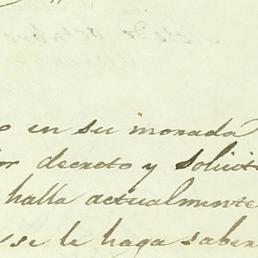 o en su morada
or decreto y solicit
halla actualmente
se le haga saber